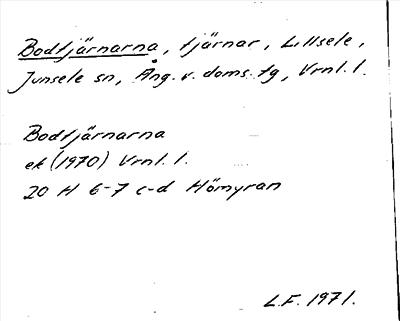 Bodtjärnarna, tjärnar, Lillsele,
Junsele sn, Ång. v. doms. tg, Vrnl. l.
Bodtjärnarna
ek (1970) Vrnl. l.
20 H 6-7 c-d Hömyran
L.F. 1971.